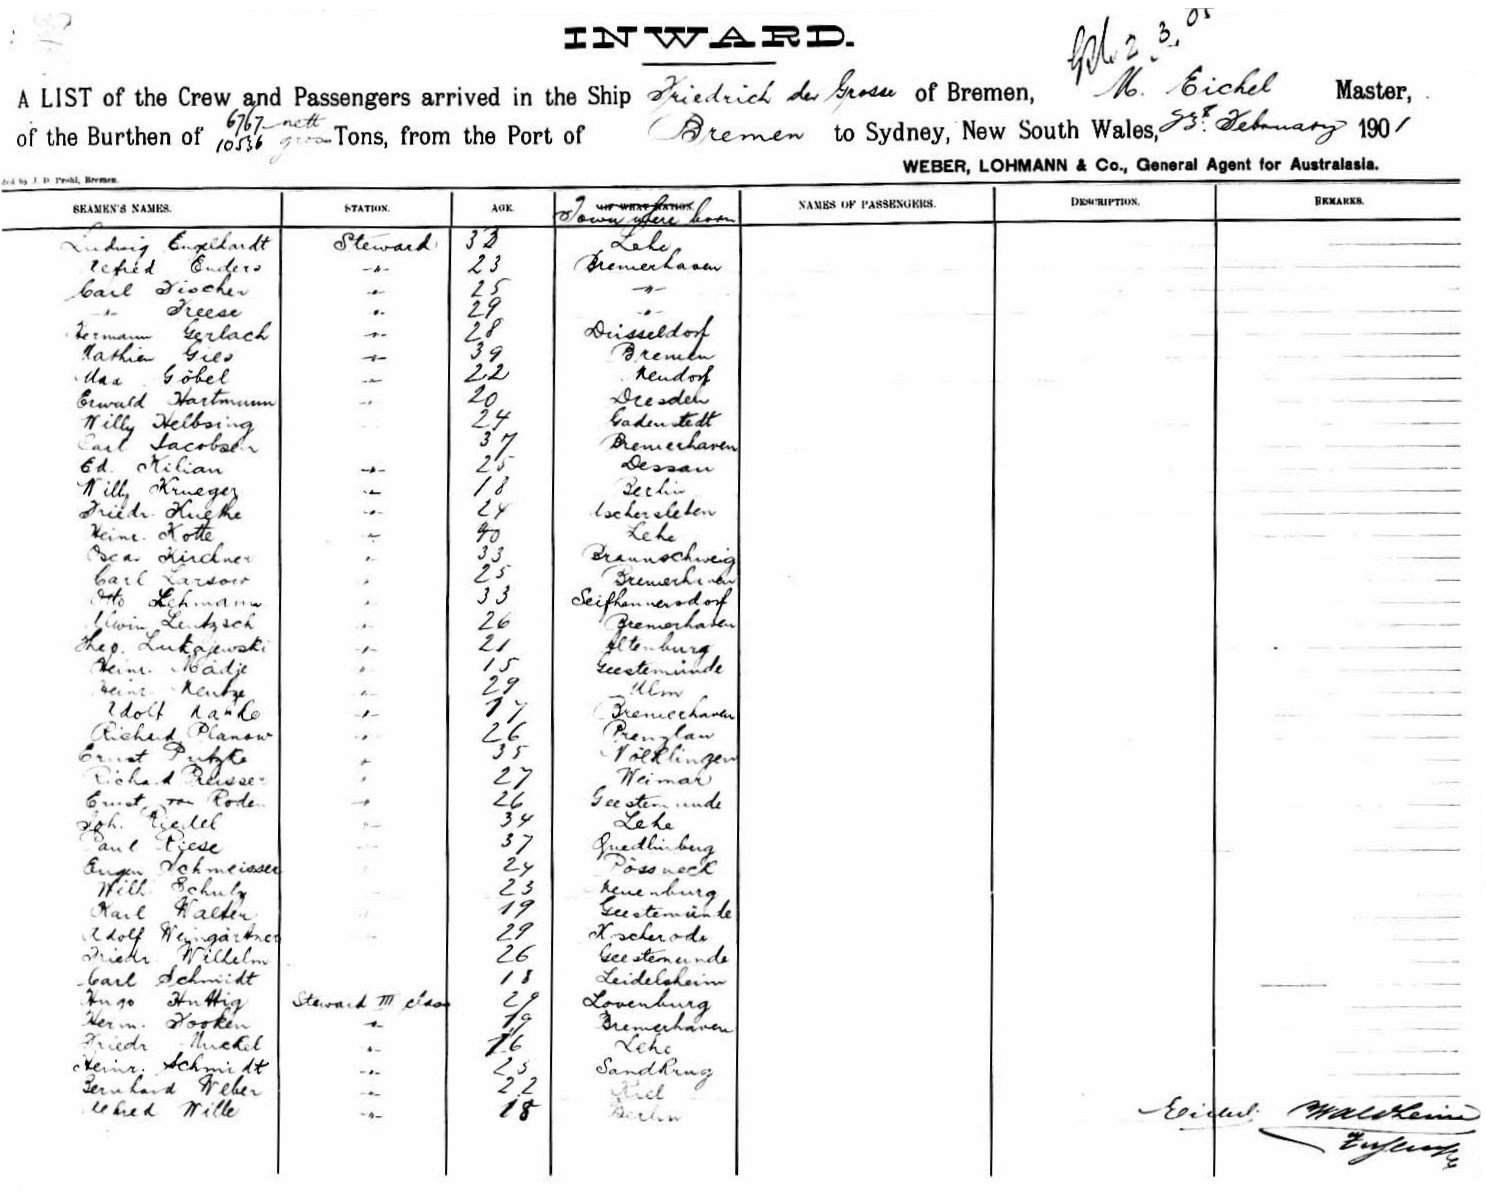 INWARD.
2. 3. 01
A LIST of the Crew and Passengers arrived in the Ship Friedrich der Grosse of Bremen, M. Eichel Master,
6767 nett
of the Burthen of 10536 gross Tons, from the Port of Bremen to Sydney, New South Wales, 23d February 1901
WEBER, LOHMANN & Co., General Agent for Australasia.
by J. D. Prohl, Bremen.
SEAMEN'S NAMES. STATION. AGE. OF WHAT NATION. Town where born NAMES OF PASSENGERS. DESCRIPTION. REMARKS.
Ludwig Engelhardt Steward 32 Lehe
Alfred Enders -"- 23 Bremerhaven
Carl Fischer -"- 25 -"-
-"- Freese -"- 29 -"-
Hermann Gerlach -"- 28 Düsseldorf
Mathien Gies -"- 39 Bremen
Max Göbel -"- 22 Neudorf
Erwald Hartmann -"- 20 Dresden
Willy Helbsing 24 Gadenstedt
Carl Jacobsen 37 Bremerhaven
Ed. Kilian -"- 25 Dessau
Willy Krueger -"- 18 Berlin
Friedr. Kuethe -"- 24 Aschersleben
Heinr. Kotte -"- 40 Lehe
Oscar Kirchner -"- 33 Braunschweig
Carl Larsow -"- 25 Bremerhaven
Otto Lehmann -"- 33 Seifhennersdorf
Alwin Lentzsch -"- 26 Bremerhaven
Theo. Lukajewski -"- 21 Altenburg
Heinr. Mädje -"- 15 Geestemünde
Heinr. Mentze -"- 29 Ulm
Adolf -"- 17 Bremerhaven
Richard Planow -"- 26 Prenzlau
Ernst Putzke -"- 35 Völklingen
Richard Preisser -"- 27 Weimar
Ernst von Roden -"- 26 Geestemünde
Joh. Riedel -"- 34 Lehe
Paul Riese 37 Quedlinburg
Eugen Schmeisser 24 Pössneck
Wilh. Schulz 23 Neuenburg
Karl Walter 19 Geestemünde
Adolf Weingärtner 29 Kscherode
Friedr. Wilhelm 26 Geestemunde
Carl Schmidt 18 Leidelsheim
Hugo Huttig Steward III class 29 Lovenburg
Herm. Fooken -"- 19 Bremerhaven
Friedr. Muckel -"- 16 Lehe
Heinr. Schmidt -"- 25 Sandkrug
Bernhard Weber -"- 22 Kiel
Alfred Wille -"- 18 Berlin
Eichel.